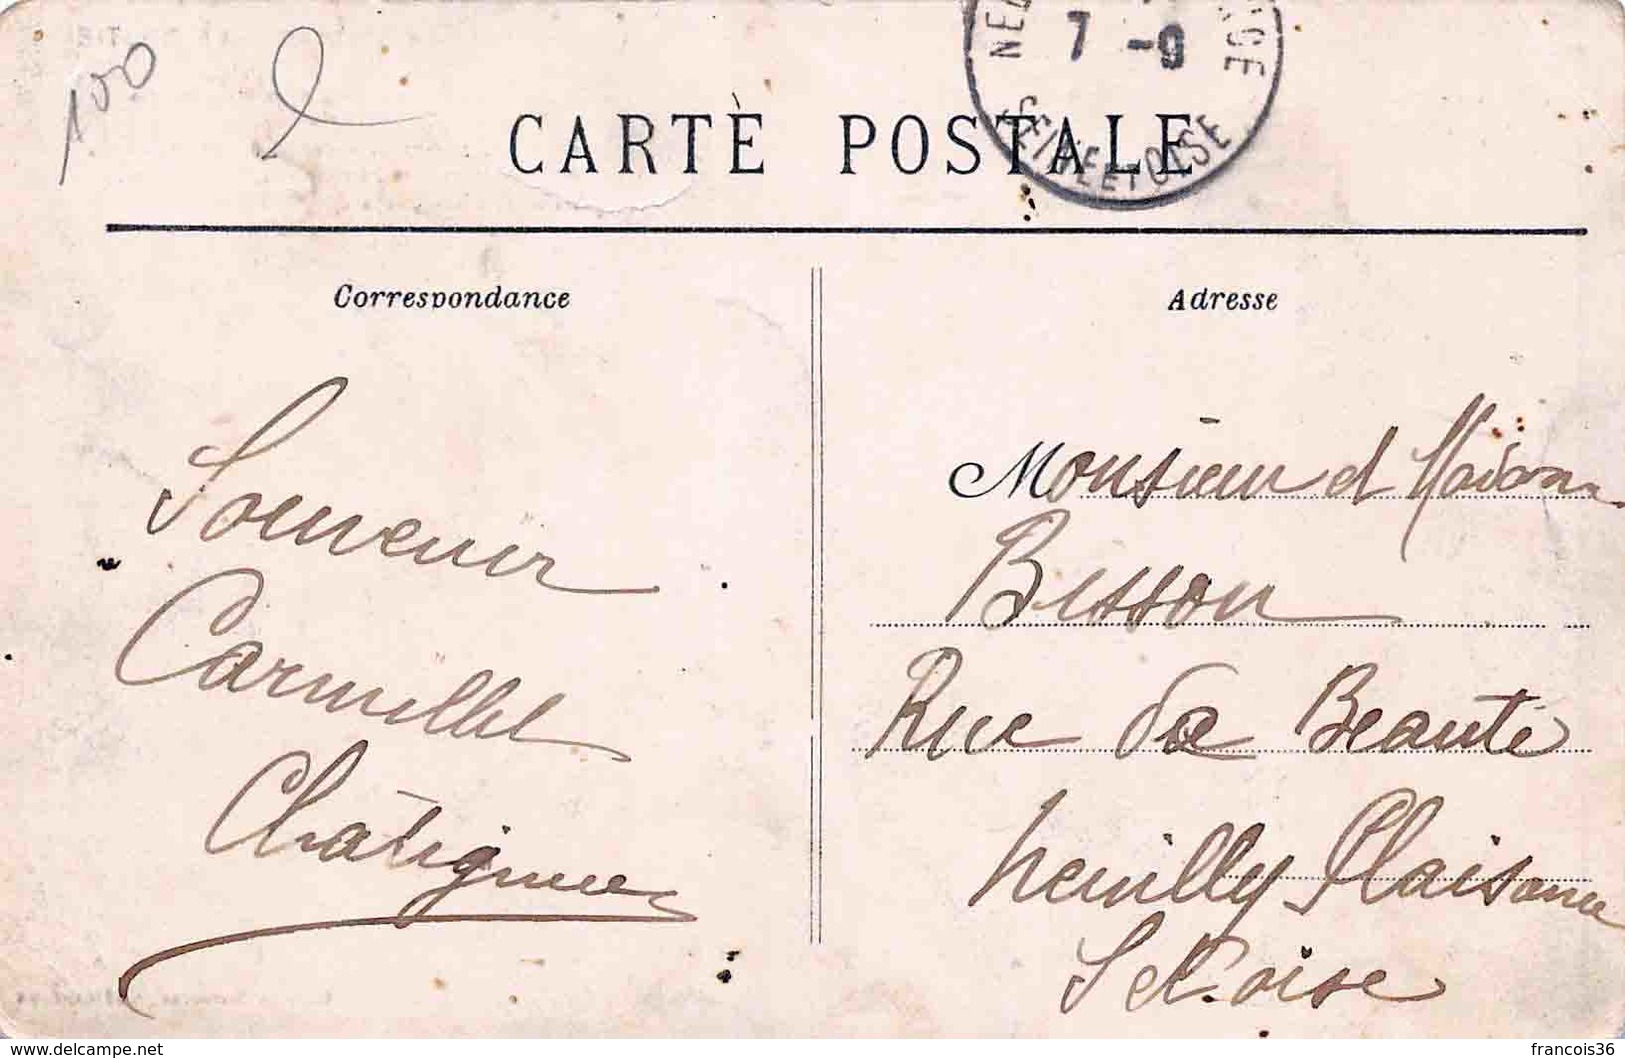 100
NE CE
7 -9
SEINE ET OISE
CARTE POSTALE
Correspondance
Adresse
Souvenir
Carmillet
Monsieur et Madame
Besson
Rue de Beauté
Neuilly Plaisance
S et Oise
www.delcampe.net
francois36